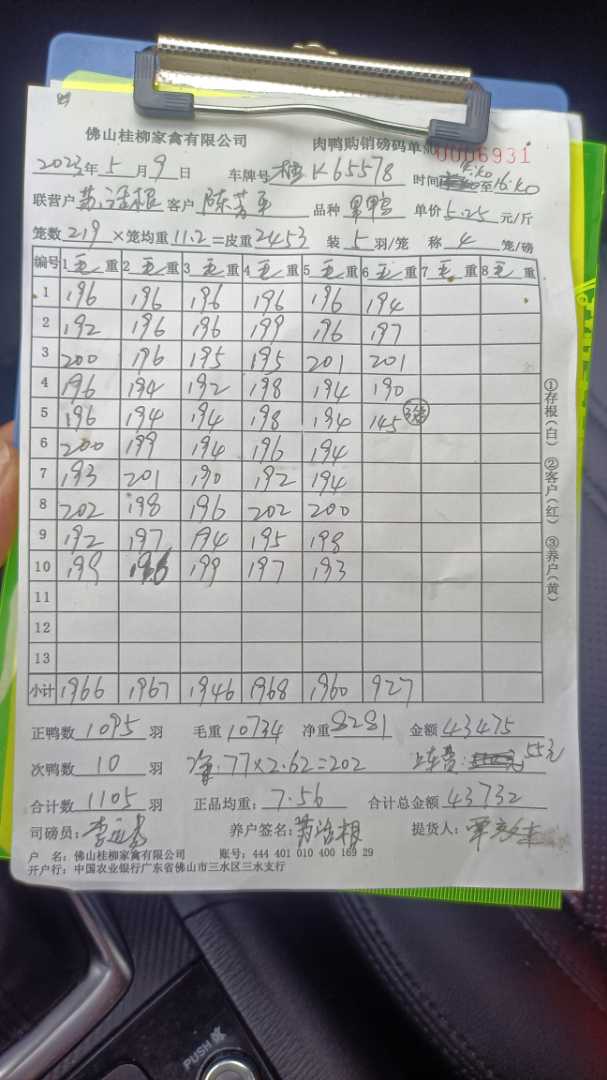 佛山桂柳家禽有限公司 肉鸭购销磅码单 0006931
2023年5月9日 车牌号 桂K65578 时间 至
联营户 客户 品种 单价5.25元/斤
笼数219×笼均重11.2=皮重2453 装5羽/笼 称4笼/磅
编号 1毛重 2毛重 3毛重 4毛重 5毛重 6毛重 7毛重 8毛重
1 196 196 196 196 196 194
2 192 196 196 199 196 197
3 200 196 195 195 201 201
4 196 194 192 198 194 190
5 196 194 194 198 194 145
6 200 199 194 196 194
7 193 201 190 192 194
8 202 198 196 202 200
9 192 197 194 195 198
10 199 196 199 197 193
11
12
13
小计 1966 1967 1946 1968 1960 927
①存根(白) ②客户(红) ③养户(黄)
正鸭数1095羽 毛重10734 净重8281 金额43475
次鸭数10羽 净.77×2.62=202 上车费: 55元
合计数1105羽 正品均重:7.56 合计总金额43732
司磅员: 养户签名: 提货人:
户 名:佛山桂柳家禽有限公司 账号:444 401 010 400 169 29
开户行:中国农业银行广东省佛山市三水区三水支行
PUSH